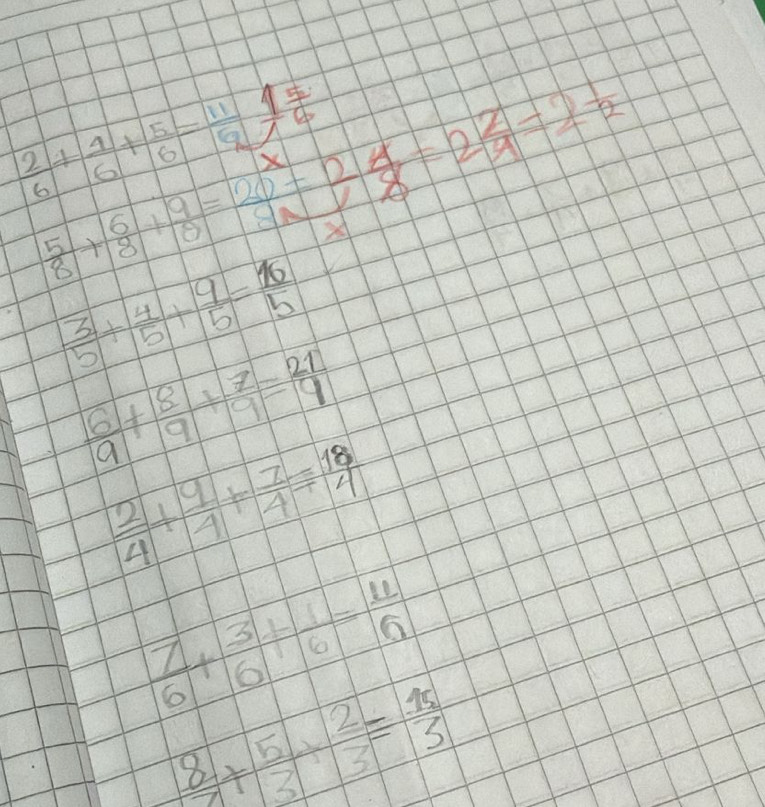 2/6 + 4/6 + 5/6 = 11/6 1 5/6 x
5/8 + 6/8 + 9/8 = 20/8 = 2 4/8 = 2 2/4 = 2 1/2 x
3/5 + 4/5 + 9/5 = 16/5
6/9 + 8/9 + 7/9 = 21/9
2/4 + 9/4 + 7/4 = 18/4
7/6 + 3/6 + 1/6 = 11/6
8/3 + 5/3 + 2/3 = 15/3